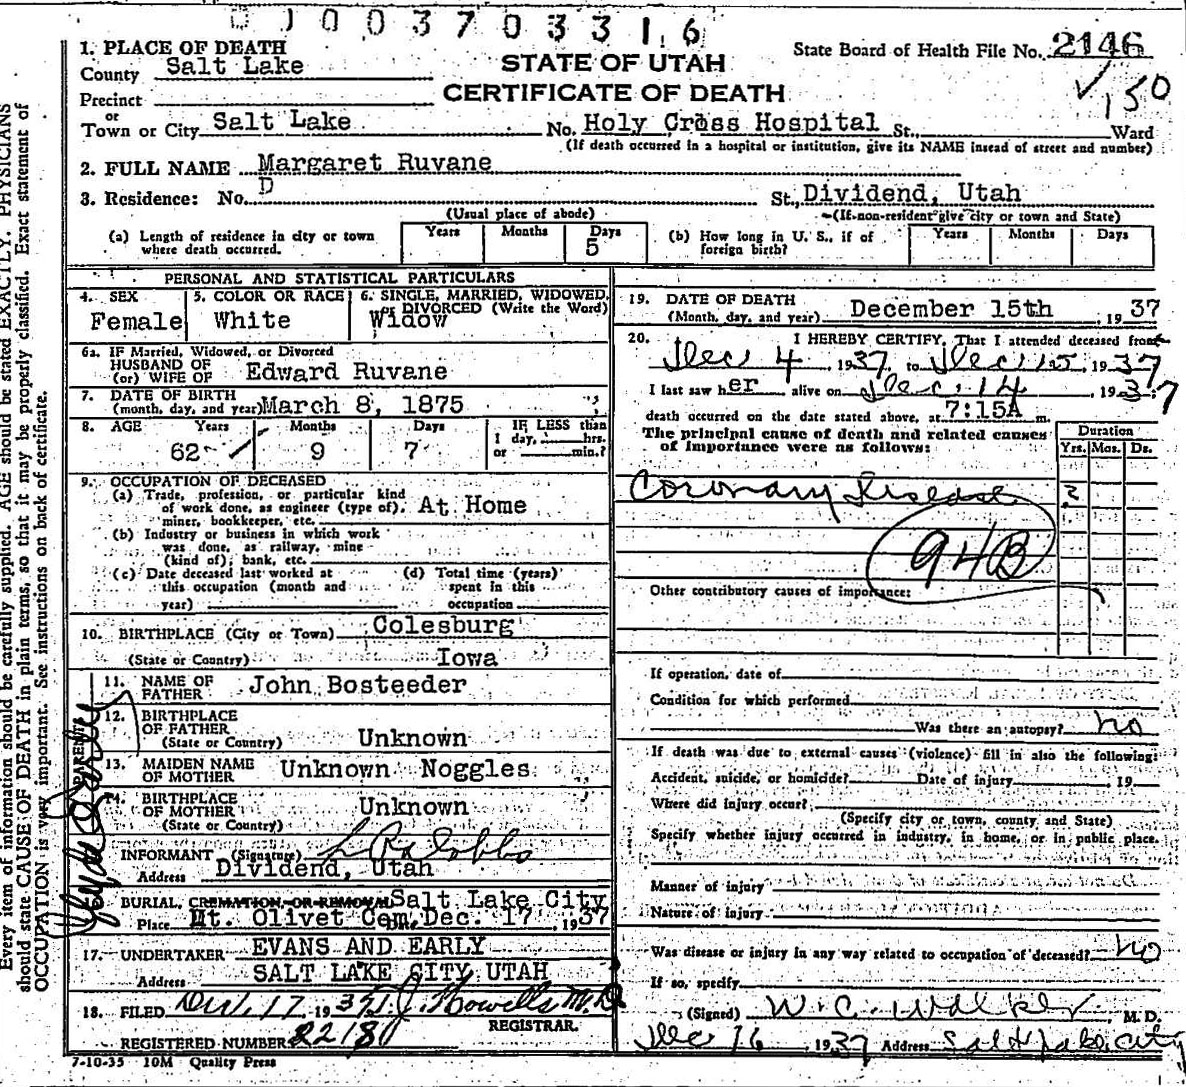 0 1 0 0 3 7 0 3 3 1 6
1. PLACE OF DEATH
County Salt Lake
STATE OF UTAH
State Board of Health File No. 2146
CERTIFICATE OF DEATH
150
Precinct
or
Town or City Salt Lake No. Holy Cross Hospital St., Ward
(If death occurred in a hospital or institution, give its NAME instead of street and number)
2. FULL NAME Margaret Ruvane
3. Residence: No. D St., Dividend, Utah
(Usual place of abode) (If non-resident give city or town and State)
(a) Length of residence in city or town where death occurred. Years Months Days 5
(b) How long in U. S., if of foreign birth? Years Months Days
PERSONAL AND STATISTICAL PARTICULARS
4. SEX Female
5. COLOR OR RACE White
6. SINGLE, MARRIED, WIDOWED, or DIVORCED (Write the Word) Widow
6a. IF Married, Widowed, or Divorced
HUSBAND OF
(or) WIFE OF Edward Ruvane
7. DATE OF BIRTH
(month, day, and year) March 8, 1875
8. AGE Years Months Days IF LESS than
1 day, hrs.
or min.?
62 9 7
9. OCCUPATION OF DECEASED
(a) Trade, profession, or particular kind
of work done, as engineer (type of), At Home
miner, bookkeeper, etc.
(b) Industry or business in which work
was done, as railway, mine
(kind of); bank, etc.
(c) Date deceased last worked at
this occupation (month and
year)
(d) Total time (years)
spent in this
occupation
10. BIRTHPLACE (City or Town) Colesburg
(State or Country) Iowa
11. NAME OF
FATHER John Bosteeder
12. BIRTHPLACE
OF FATHER
(State or Country) Unknown
13. MAIDEN NAME
OF MOTHER Unknown Noggles
14. BIRTHPLACE
OF MOTHER
(State or Country) Unknown
PARENTS
INFORMANT (Signature)
Address Dividend, Utah
BURIAL, CREMATION, OR REMOVAL Salt Lake City
Place Mt. Olivet Cem. Dec. 17, 1937
17. UNDERTAKER EVANS AND EARLY
Address SALT LAKE CITY UTAH
18. FILED Dec. 17 1937 T.J. Howells M.D.
REGISTRAR.
REGISTERED NUMBER 22180
7-10-35 10M Quality Press
19. DATE OF DEATH
(Month, day, and year) December 15th, 1937
20. I HEREBY CERTIFY, That I attended deceased from
Dec 4 1937, to Dec 15, 1937
I last saw her alive on Dec. 14, 1937
death occurred on the date stated above, at 7:15A m.
The principal cause of death and related causes
of importance were as follows:
Duration
Yrs. Mos. Ds.
Coronary Disease ?
94B
Other contributory causes of importance:
If operation, date of
Condition for which performed
Was there an autopsy? no
If death was due to external causes (violence) fill in also the following:
Accident, suicide, or homicide? Date of injury , 19
Where did injury occur?
(Specify city or town, county and State)
Specify whether injury occurred in industry, in home, or in public place.
Manner of injury
Nature of injury
Was disease or injury in any way related to occupation of deceased? no
If so, specify
(Signed) W. C. Walker, M. D.
Dec 16 1937 Address Salt Lake City
Every item of information should be carefully supplied. AGE should be stated EXACTLY. PHYSICIANS
should state CAUSE OF DEATH in plain terms, so that it may be properly classified. Exact statement of
OCCUPATION is very important. See instructions on back of certificate.